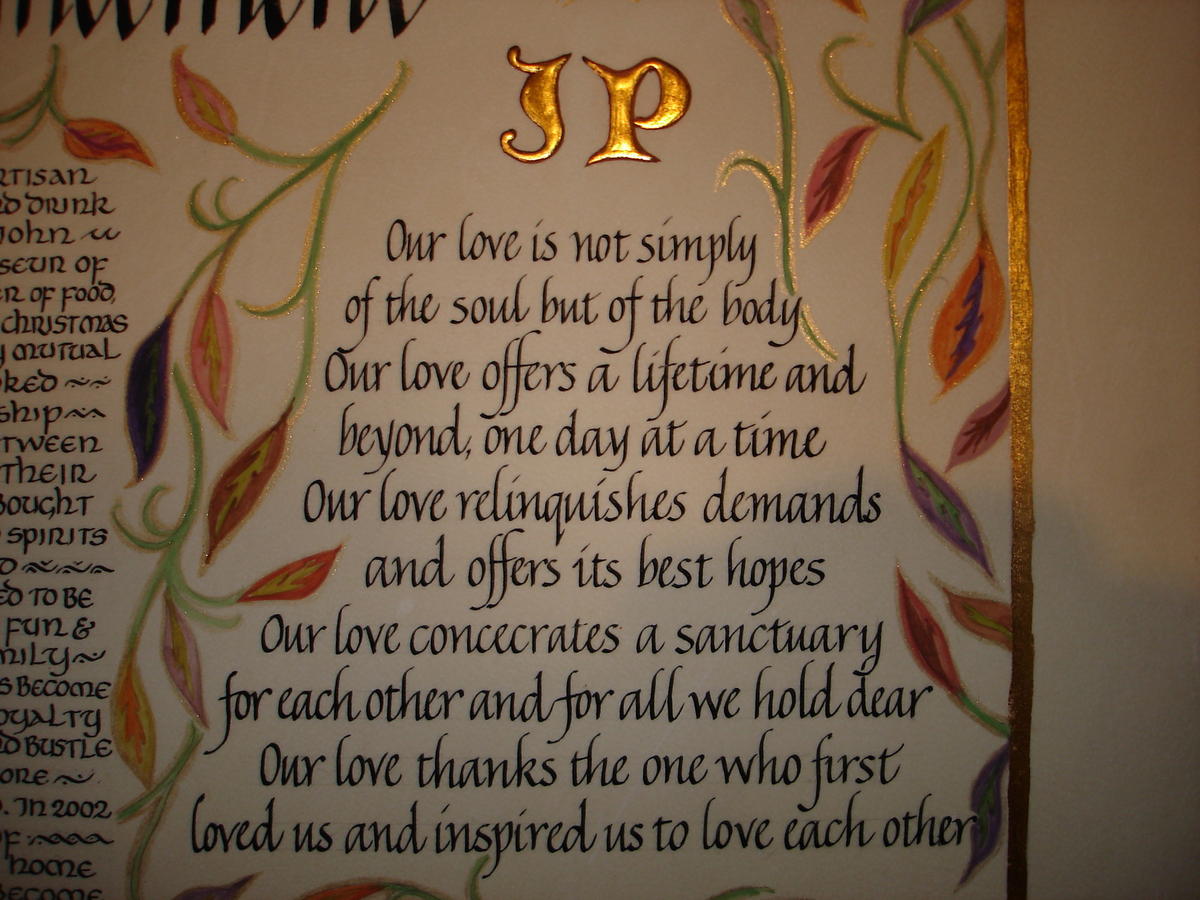 JP
Our love is not simply
of the soul but of the body
Our love offers a lifetime and
beyond, one day at a time
Our love relinquishes demands
and offers its best hopes
Our love concecrates a sanctuary
for each other and for all we hold dear
Our love thanks the one who first
loved us and inspired us to love each other
DRINK
JOHN
OF
OF FOOD,
CHRISTMAS
MUTUAL
THEIR
SPIRITS
TO BE
FUN &
BECOME
BUSTLE
. IN 2002
HOME
BECOME